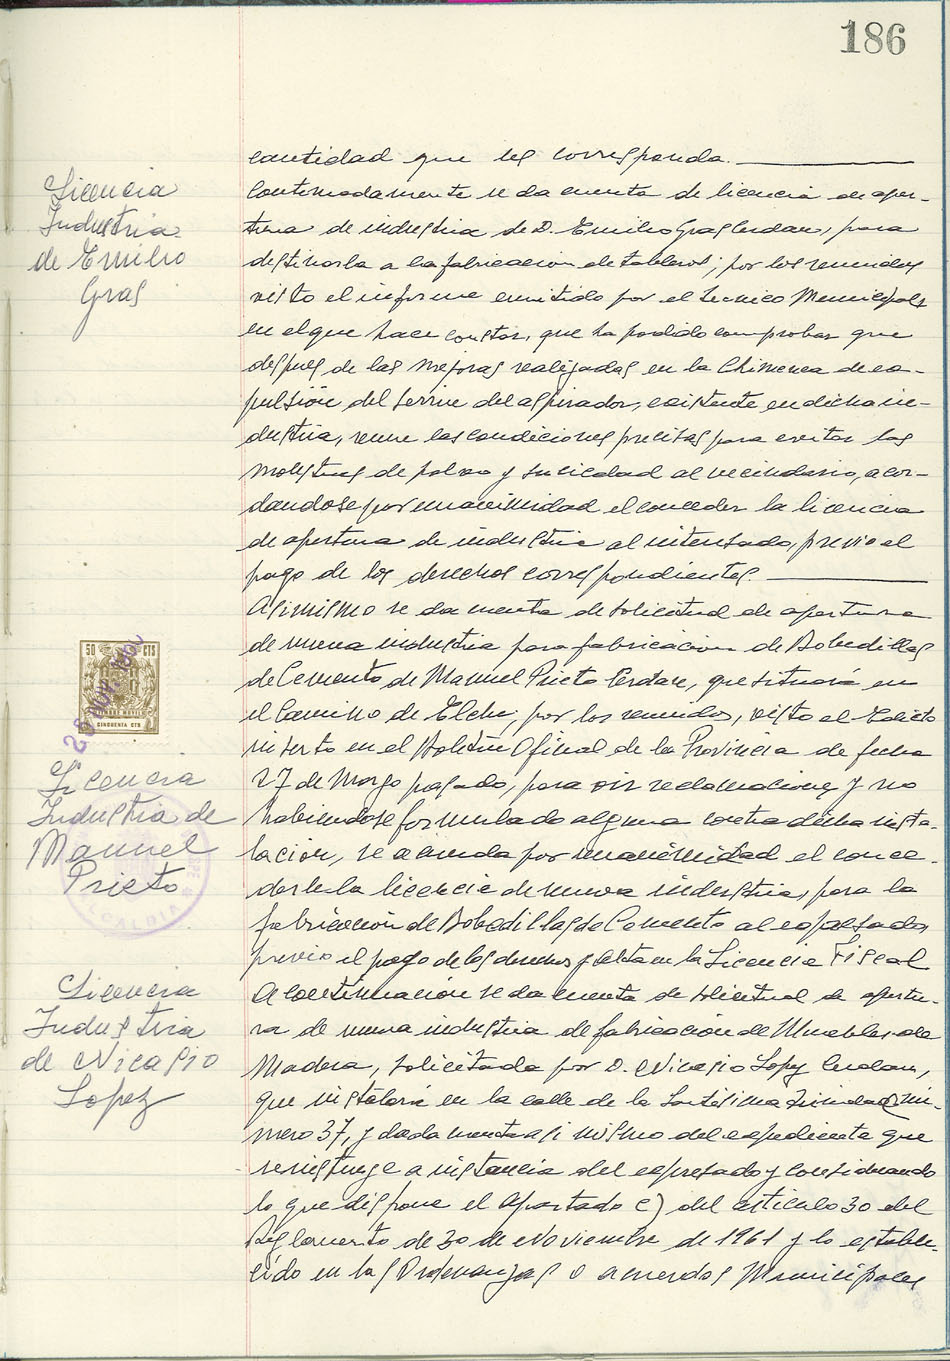 186
cantidad que les corresponda.
Licencia
Industria
de Emilio
Gras
Continuadamente se da cuenta de licencia de aper-
tura de industria de D. Emilio Gras Cerdan, para
destinarla a la fabricacion de tableros; por los reunidos
visto el informe emitido por el Tecnico Municipal
en el que hace constar, que ha podido comprobar que
despues de las mejoras realizadas en la Chimenea de ex-
pulsión del serrin del aspirador, existente en dicha in-
dustria, reune las condiciones precisas para evitar las
molestias de polvo y suciedad al vecindario, acor-
dandose por unanimidad el conceder la licencia
de apertura de industria al interesado, previo el
pago de los derechos correspondientes.
50 CTS
CINCUENTA CTS
Licencia
Industria de
Manuel
Prieto
ALCALDIA
Asimismo se da cuenta de solicitud de apertura
de nueva industria para fabricacion de Bobedillas
de Cemento de Manuel Prieto Cerdan, que situará en
el Camino de Elche, por los reunidos, visto el Edicto
inserto en el Boletin Oficial de la Provincia de fecha
27 de Marzo pasado, para oir reclamaciones y no
habiendose formulado alguna contra dicha insta-
lacion, se acuerda por unanimidad el conce-
derle la licencia de nueva industria, para la
fabricación de Bobedillas de Cemento al expresado
previo el pago de los derechos y alta en la Licencia Fiscal
Licencia
Industria
de Nicasio
Lopez
A continuación se da cuenta de solicitud de apertu-
ra de nueva industria de fabricación de Muebles de
Madera, solicitada por D. Nicasio Lopez Cerdan,
que instalará en la calle de la Santisima Trinidad nú-
mero 37, y dada cuenta asi mismo del expediente que
se instruye a instancia del expresado y considerando
lo que dispone el apartado c) del articulo 30 del
Reglamento de 30 de Noviembre de 1961 y lo estable-
cido en las Ordenanzas o acuerdos Municipales